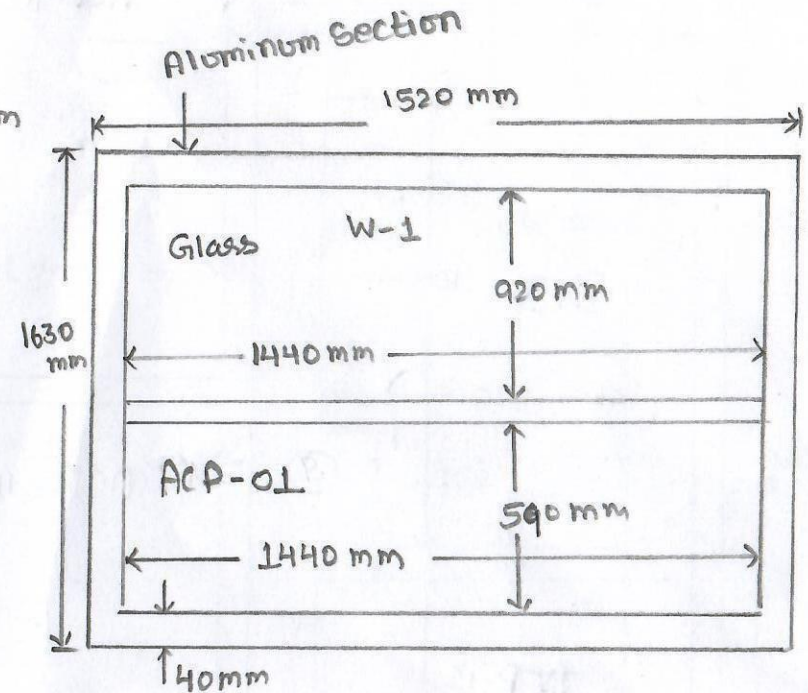 Aluminum Section
m
1520 mm
W-1
Glass
920 mm
1630
mm
1440 mm
ACP-01
590 mm
1440 mm
40mm